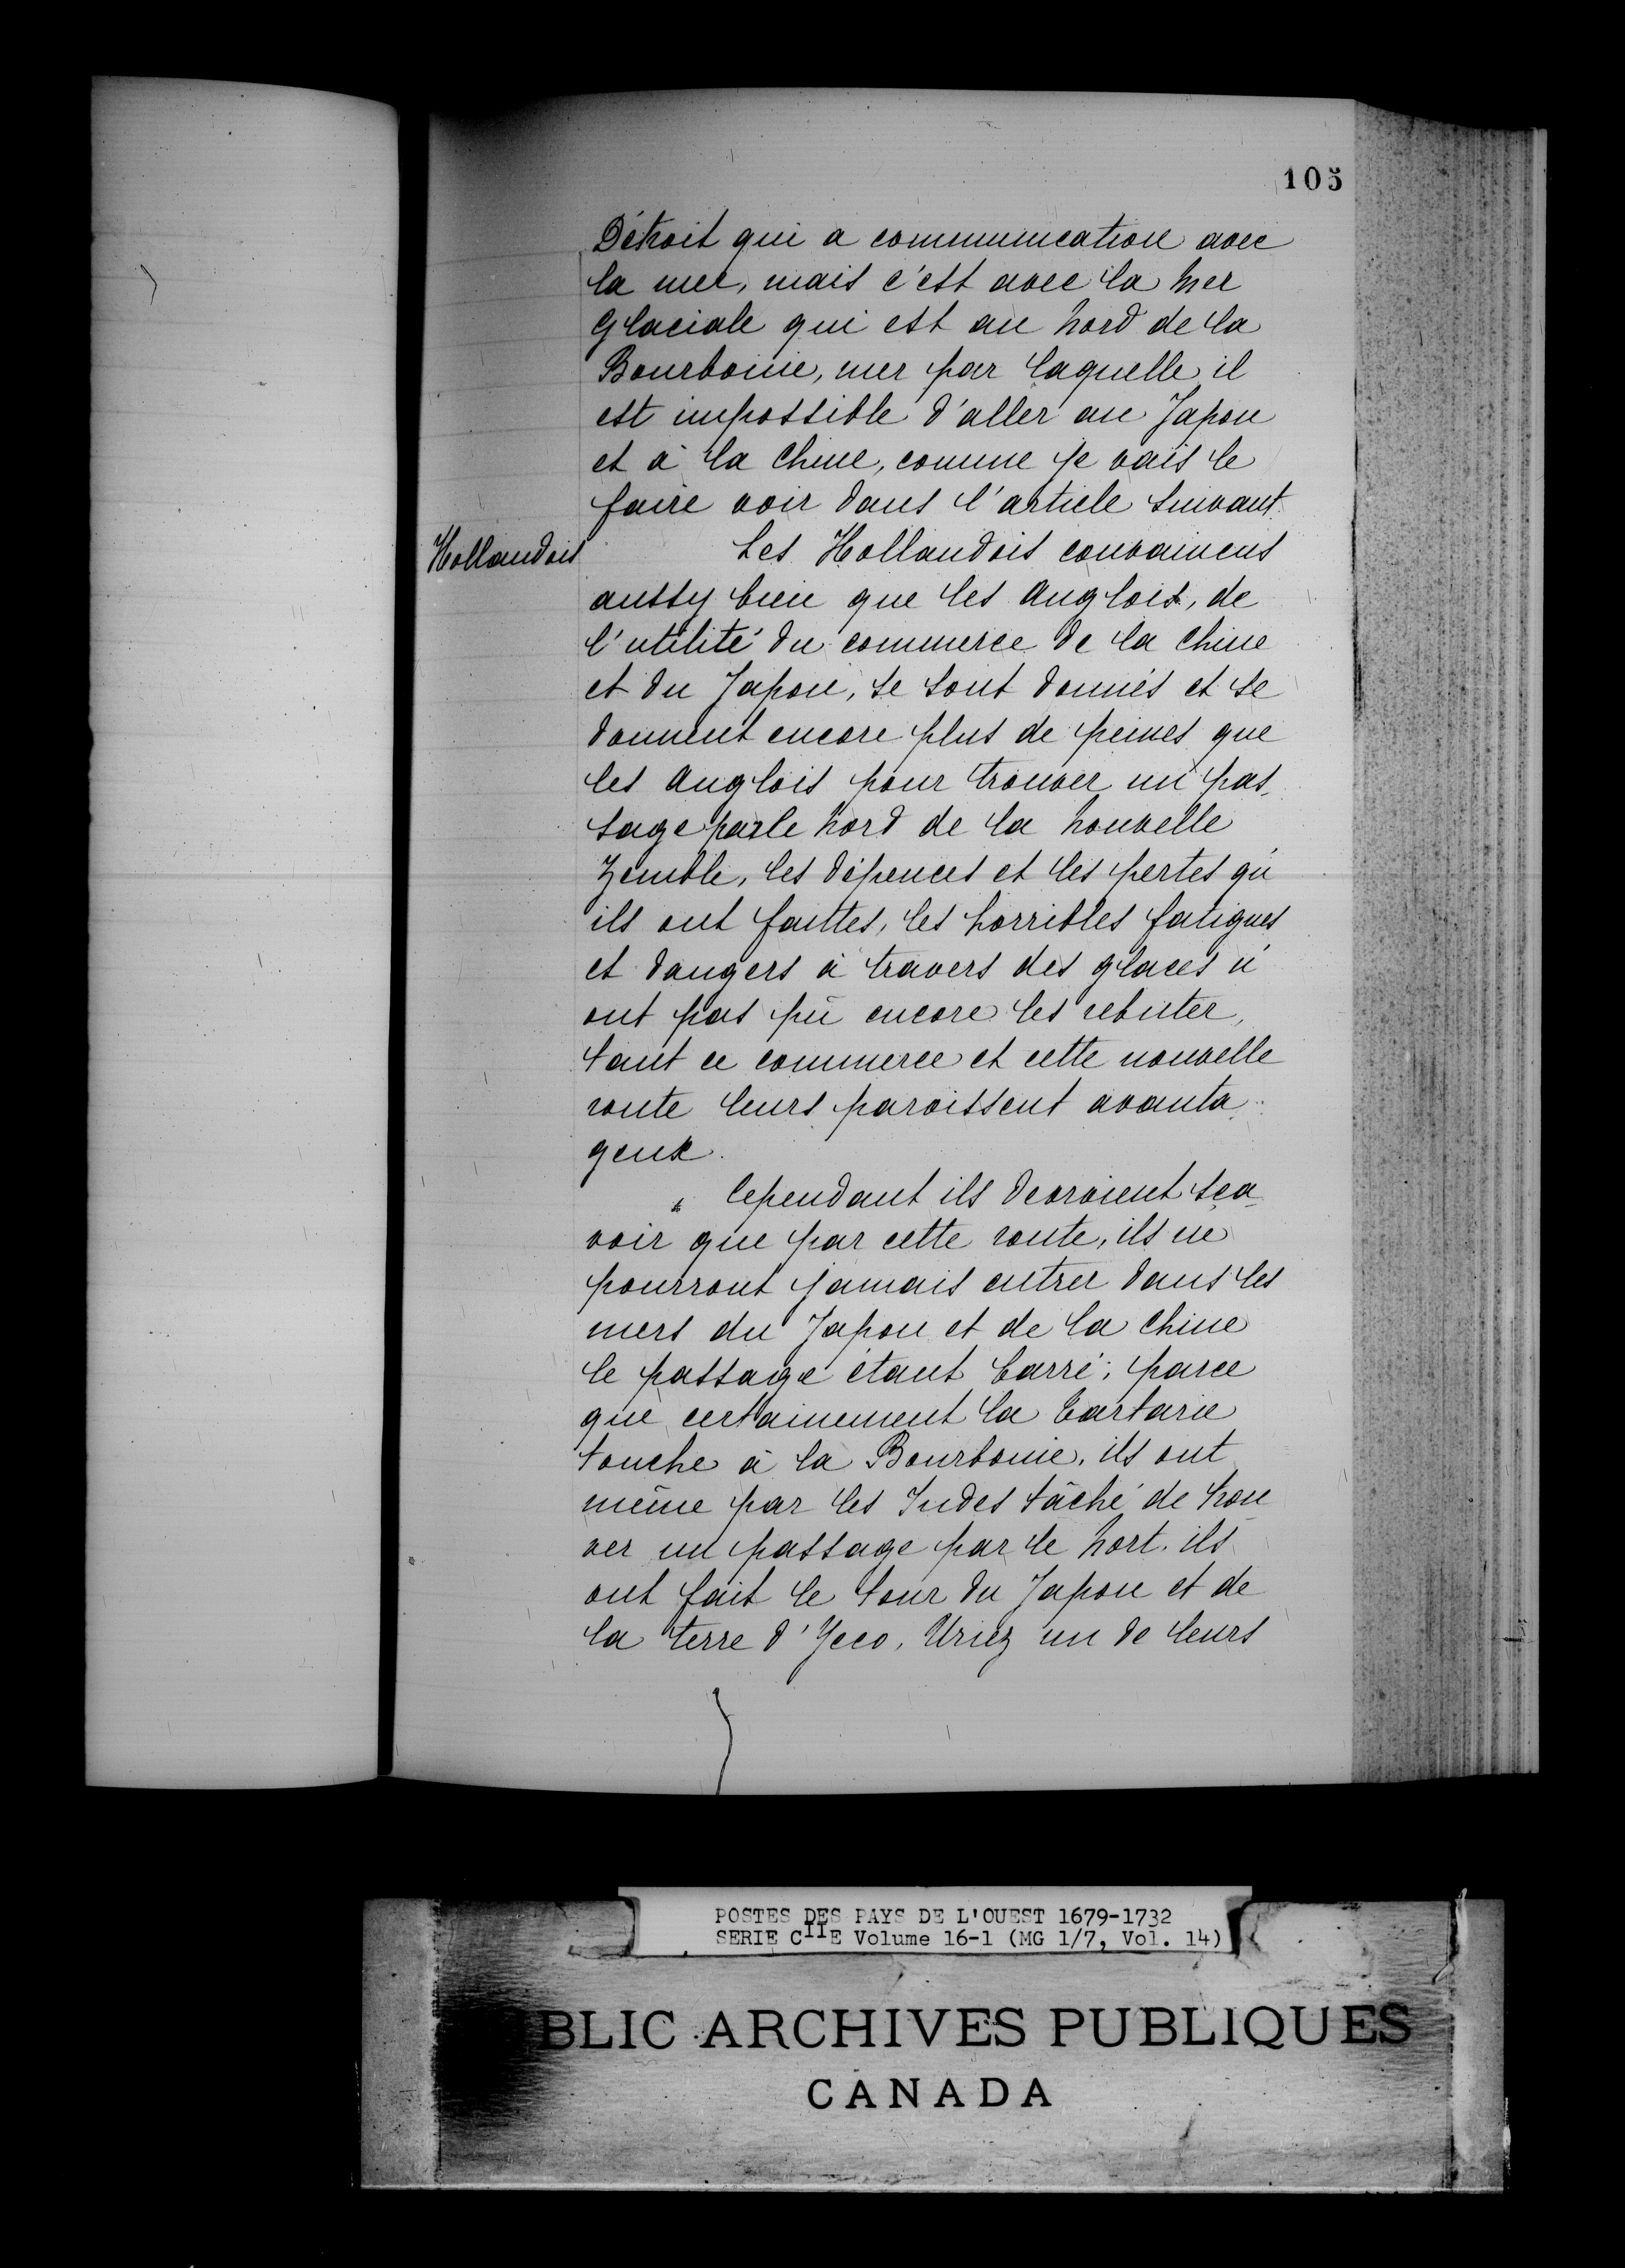 105
Détroit qui a communication avec
la mer, mais c'est avec la mer
glaciale qui est au nord de la
Bourbonie, mer par laquelle il
est impossible d'aller au Japon
et à la Chine, comme je vais le
faire voir dans l'article suivant.
Hollandois
Les Hollandois convaincus
aussy bien que les Anglois, de
l'utilité du commerce de la Chine
et du Japon, se sont donnés et se
donnent encore plus de peines que
les Anglois pour trouver un pas-
sage par le nord de la nouvelle
Zemble, les dépences et les pertes qu'
ils ont faittes, les horribles fatigues
et dangers à travers des glaces n'
ont pas pû encore les rebuter,
tant ce commerce et cette nouvelle
route leurs paroissent avanta-
geux.
Cependant ils devroient sça-
voir que par cette route, ils ne
pourront jamais entrer dans les
mers du Japon et de la Chine
le passage étant barré; parce
que certainement la Tartarie
touche à la Bourbonie, ils ont
même par les Indes tâché de trou
ver un passage par le nort. ils
ont fait le tour du Japon et de
la terre d'Yeco, Uriez un de leurs
POSTES DES PAYS DE L'OUEST 1679-1732
SERIE CIIE Volume 16-1 (MG 1/7, Vol. 14)
BLIC ARCHIVES PUBLIQUES
CANADA